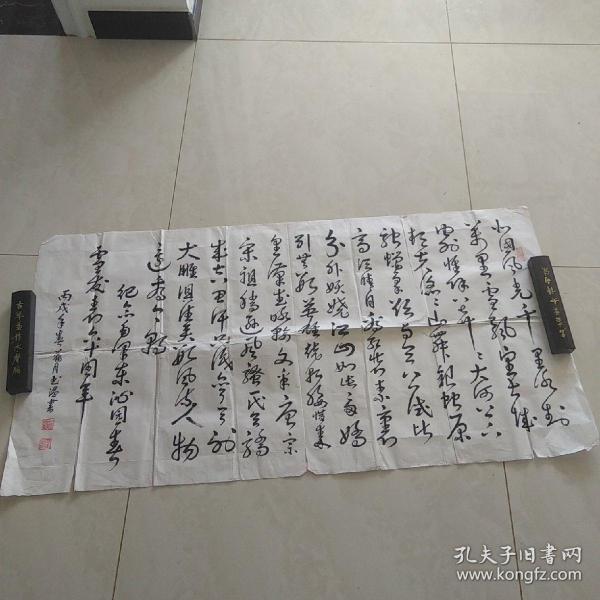 北国风光千里冰封
万里雪飘望长城
内外惟余莽莽大河上下
顿失滔滔山舞银蛇原
驰蜡象欲与天公试比
高须晴日看红装素裹
分外妖娆江山如此多娇
引无数英雄竞折腰惜秦
皇汉武略输文采唐宗
宋祖稍逊风骚一代天骄
成吉思汗只识弯弓射
大雕俱往矣数风流人物
还看今朝
纪念毛泽东沁园春
雪发表六十周年
丙戌年
书
孔夫子旧书网
www.kongfz.com